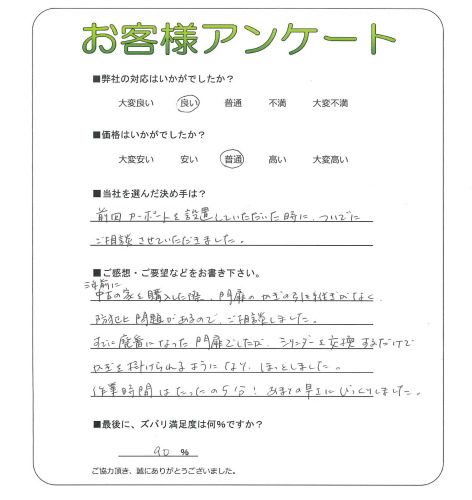 お客様アンケート
■弊社の対応はいかがでしたか？
大変良い 良い 普通 不満 大変不満
■価格はいかがでしたか？
大変安い 安い 普通 高い 大変高い
■当社を選んだ決め手は？
前回カーポートを設置していただいた時に、ついでに
ご相談させていただきました。
■ご感想・ご要望などをお書き下さい。
三年前に
中古の家を購入した際、門扉のカギの引き継ぎがなく、
防犯上問題があるので、ご相談しました。
すでに廃番になった門扉でしたが、シリンダーを交換するだけで
カギを掛けられるようになり、ほっとしました。
作業時間はたったの5分！あまりの早さにびっくりしました。
■最後に、ズバリ満足度は何％ですか？
90 %
ご協力頂き、誠にありがとうございました。